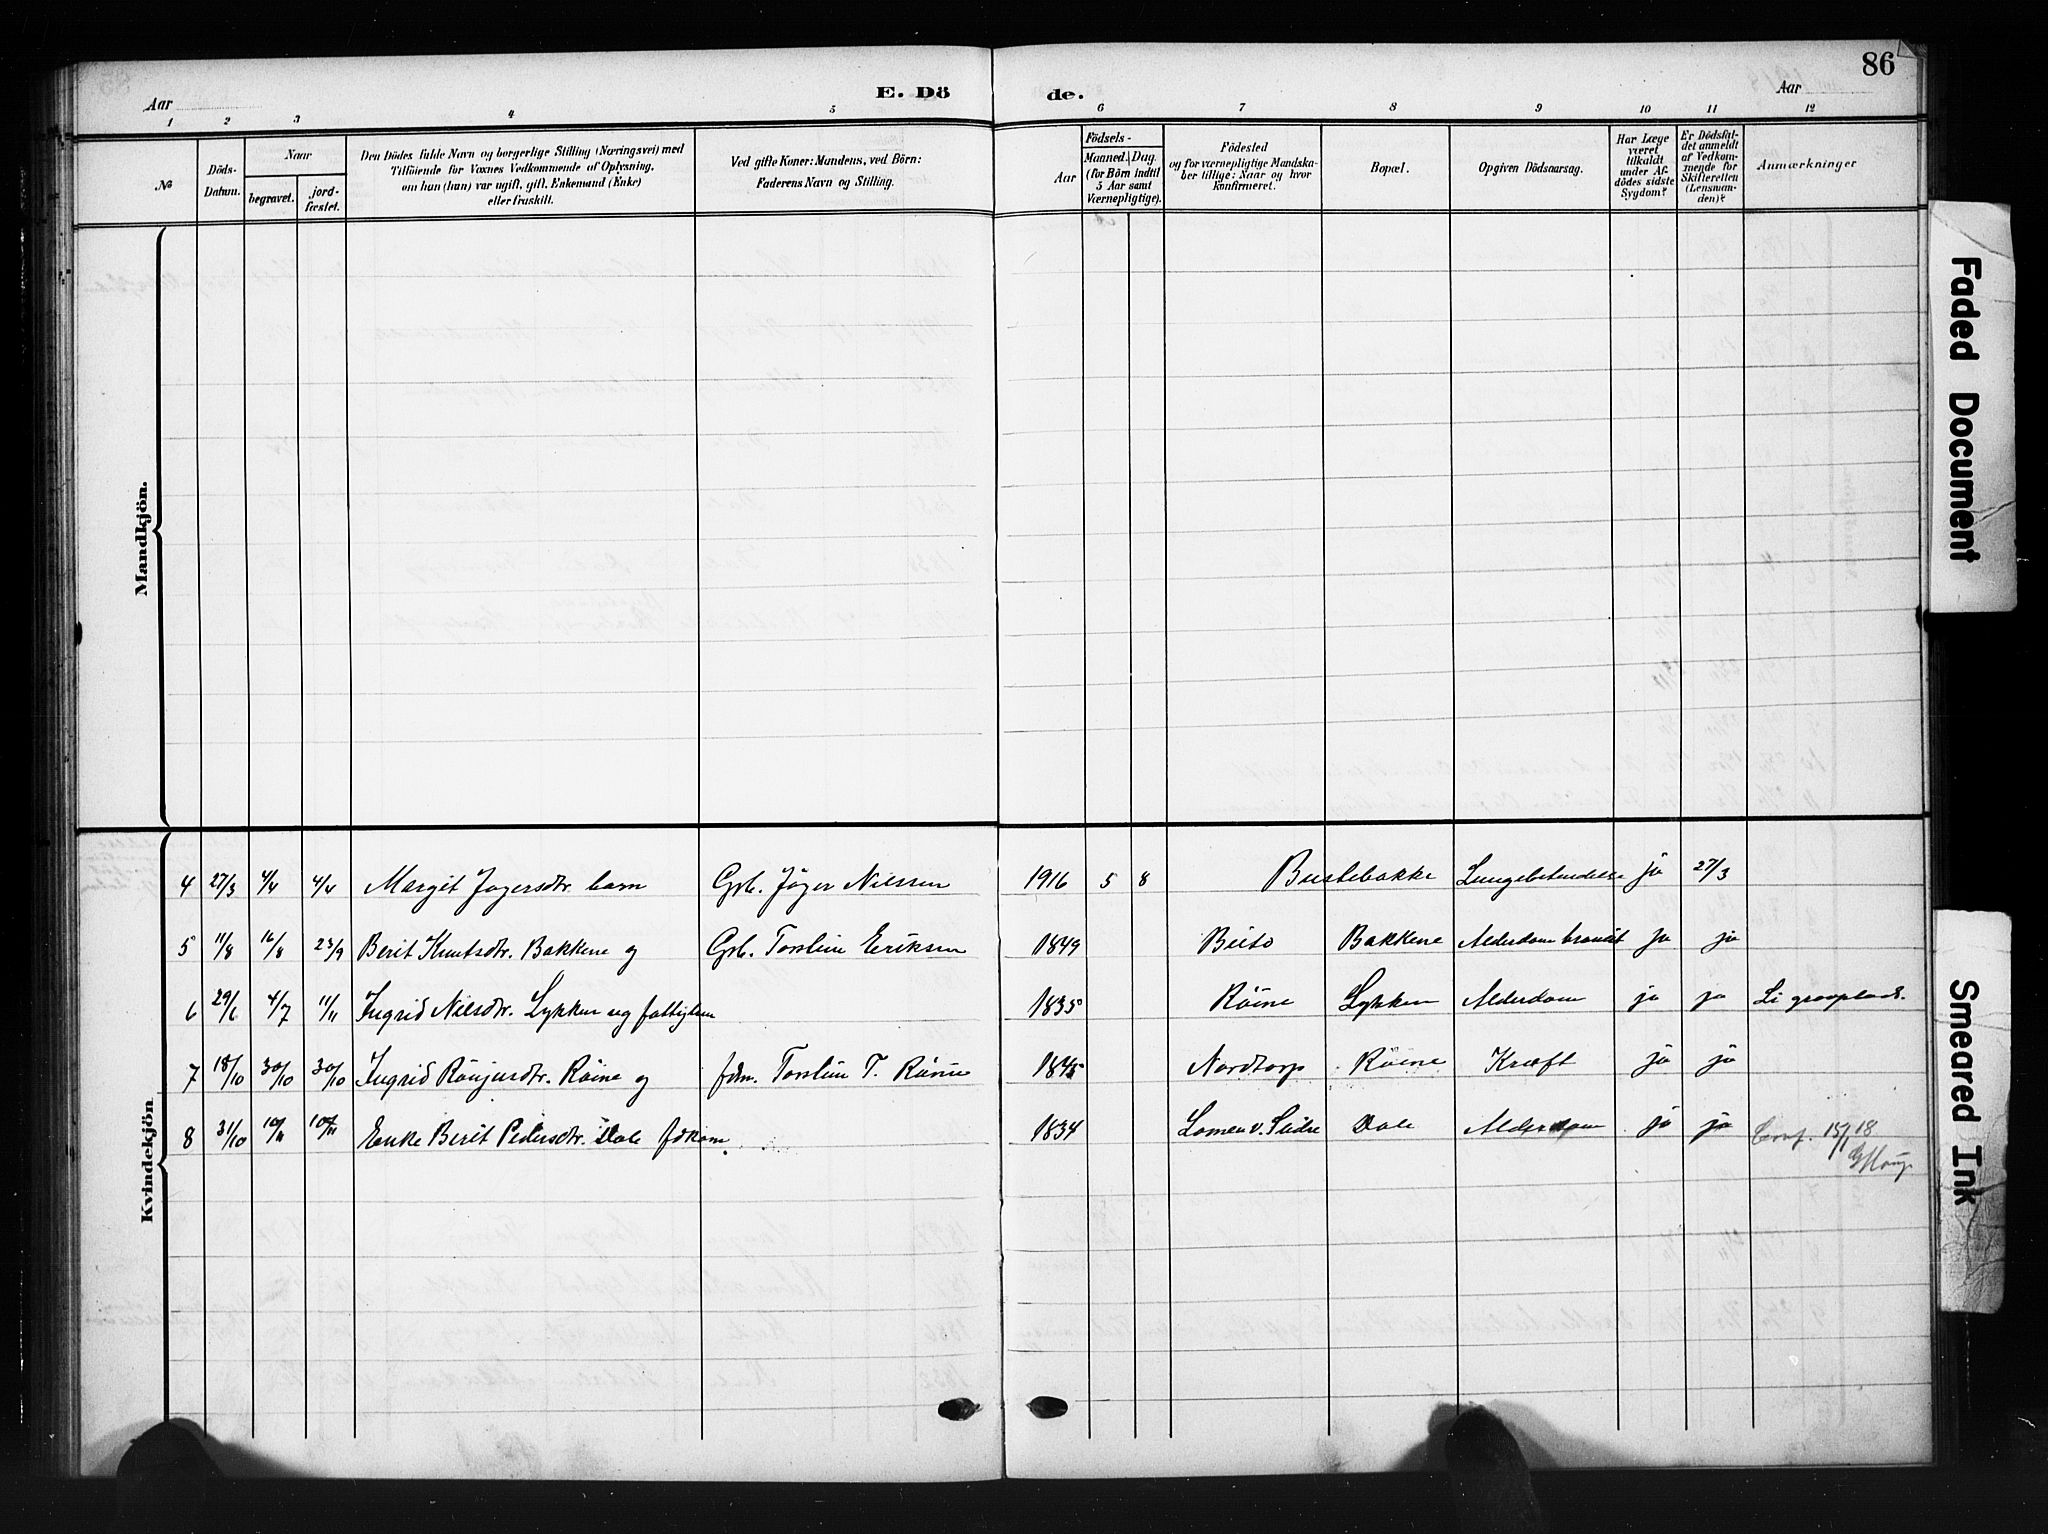 86
Aar
E. Dö
de.
Aar
1 2 3 4 5 6 7 8 9 10 11 12
No
Döds-
Datum.
Naar
begravet.
jord-
fæstet.
Den Dödes fulde Navn og borgerlige Stilling (Næringsvei) med
Tilföiende for Voxnes Vedkommende af Oplysning,
om han (hun) var ugift, gift, Enkemand (Enke)
eller fraskilt.
Ved gifte Koner: Mandens, ved Börn:
Faderens Navn og Stilling.
Födsels-
Aar
Maaned. Dag.
(for Börn indtil
5 Aar samt
Værnepligtige).
Födested
og for værnepligtige Mandska-
ber tillige: Naar og hvor
konfirmeret.
Bopæl.
Opgiven Dödsaarsag.
Har Læge
været
tilkaldt
under Af-
dödes sidste
Sygdom?
Er Dödsfal-
det anmeldt
af Vedkom-
mende for
Skifteretten
(Lensman-
den)?
Anmærkninger
Mandkjön.
Kvindekjön
4 27/3 4/4 4/4 Margit Jøgersdtr. barn Grb. Jøger Nilssen 1916 5 8 Bustebakke Lungebetendelse ja 27/3
5 11/8 16/8 23/9 Berit Knutsdtr. Bakkene g Grb. Torstein Eriksen 1849 Beito Bakkene Alderdom ja ja
6 29/6 4/7 11/11 Ingrid Nilsdtr. Lykken ug fattiglem 1835 Röine Lykken Alderdom ja ja Li gravplads.
7 18/10 30/10 30/10 Ingrid Röine g fdm. Torstein T. Röine 1845 Nordtorp Röine Kræft ja ja
8 31/10 10/11 10/11 Enke Berit Pedersdtr. Dale fdkom 1834 Lomen v. Slidre Dale Alderdom ja ja Conf. 15/1 18
Faded Document
Smeared Ink